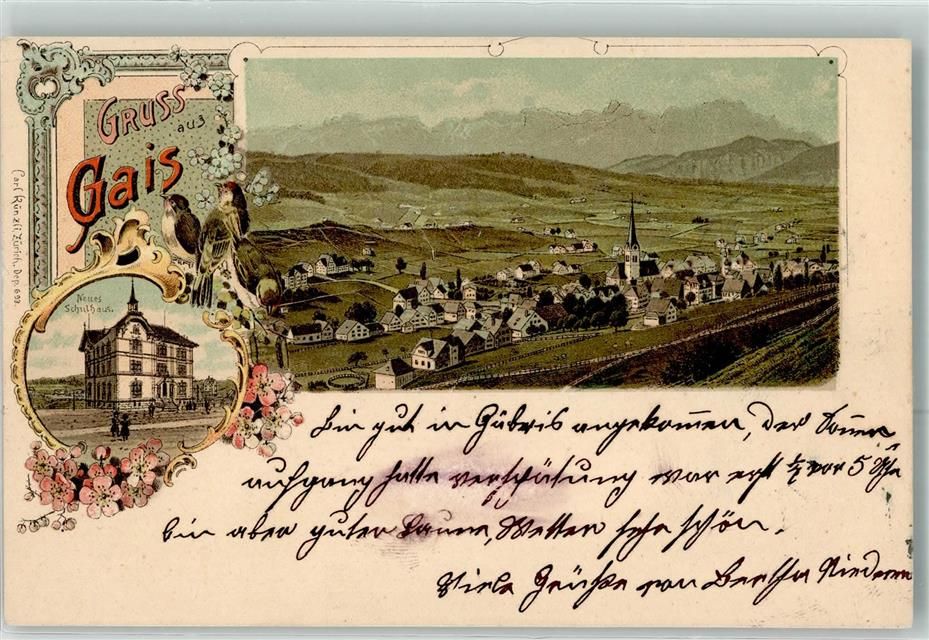 Gruss
aus
Gais
Carl Künzli, Zürich, Dep. 693.
Neues
Schulhaus.
Bin gut in Gäbris angekommen, der Sonnen
aufgang hatte verspätung war erst ½ vor 5 Uhr
bin aber guter Laune, Wetter sehr schön.
Viele Grüße von Bertha